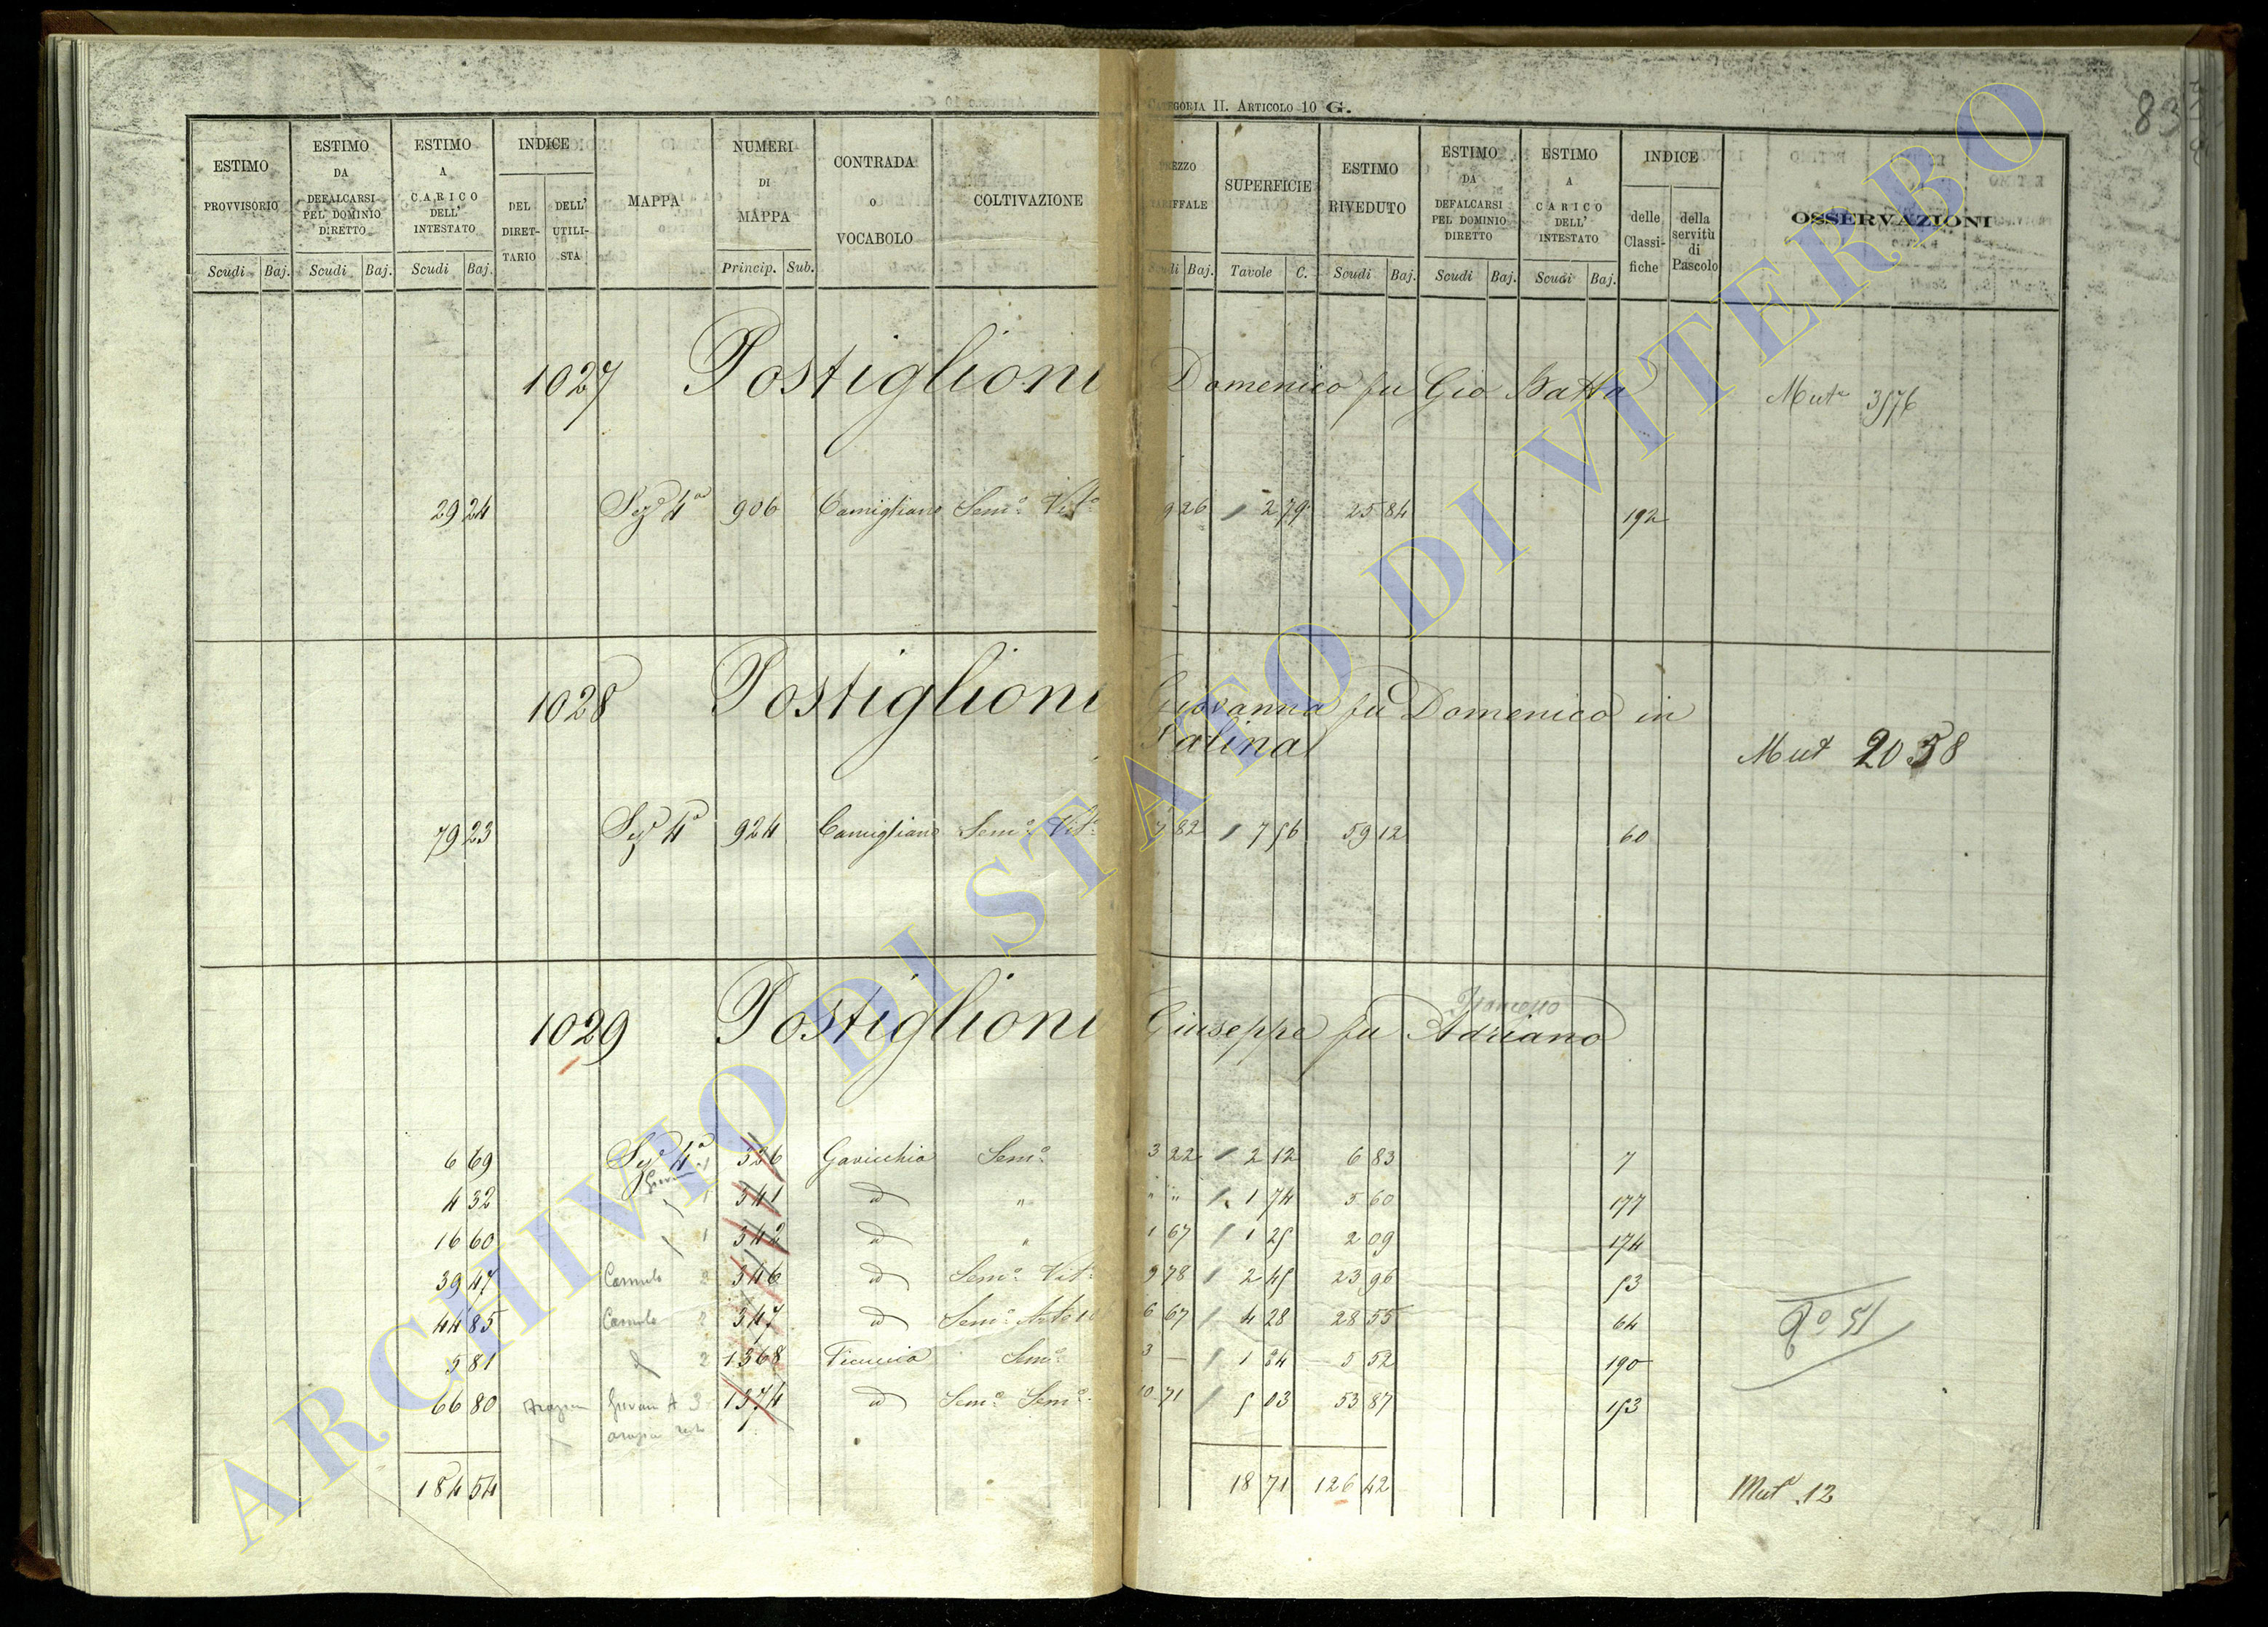 CATEGORIA II. ARTICOLO 10 G.
83
ESTIMO PROVVISORIO
Scudi Baj.
ESTIMO DA DEFALCARSI PEL DOMINIO DIRETTO
Scudi Baj.
ESTIMO A CARICO DELL' INTESTATO
Scudi Baj.
INDICE
DEL DIRET-TARIO
DELL' UTILI-STA
MAPPA
NUMERI DI MAPPA
Princip. Sub.
CONTRADA o VOCABOLO
COLTIVAZIONE
PREZZO TARIFFALE
Scudi Baj.
SUPERFICIE
Tavole C.
ESTIMO RIVEDUTO
Scudi Baj.
ESTIMO DA DEFALCARSI PEL DOMINIO DIRETTO
Scudi Baj.
ESTIMO A CARICO DELL' INTESTATO
Scudi Baj.
INDICE
delle Classi-fiche
della servitù di Pascolo
OSSERVAZIONI
1027 Postiglioni Domenico fu Gio Batta Mut 3576
29 24 Sez 4a 906 Camigliano Semo Vito 9 26 2 79 25 84 192
1028 Postiglioni Giovanna fu Domenico in
Salina
Mut 2058
79 23 Sez 4a 924 Camigliano Semo Vito 7 82 7 56 59 12 60
1029 Postiglioni Giuseppe fu Adriano
6 69 Sez 4a 1 326 Gavicchia Semo 3 22 2 12 6 83 7
4 32 1 341 id " " " 1 74 5 60 177
16 60 1 342 id " 1 67 1 25 2 09 174
39 47 2 346 id Semo Vito 9 78 2 45 23 96 53
44 85 2 347 id Semo 6 67 4 28 28 55 64
5 81 2 1368 Semo 3 — 1 84 5 52 190
66 80 3 1374 id Semo Semo 10 71 5 03 53 87 153
184 54 18 71 126 42 Mut 12
ARCHIVIO DI STATO DI VITERBO